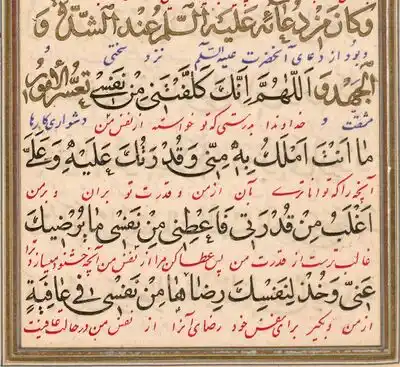 وَكَانَ مِنْ دُعَائِهِ عَلَيْهِ السَّلَامُ عِنْدَ الشِّدَّةِ وَ
و بود از دعای آنحضرت علیه السلام نزد سختی و
الْجَهْدِ وَ تَعَسُّرِ الْأُمُورِ اَللّٰهُمَّ اِنَّكَ كَلَّفْتَنِي مِنْ نَفْسِي
مشقت و دشواری کارها خداوندا بدرستی که تو خواسته از نفس من
مَا اَنْتَ اَمْلَكُ بِهِ مِنِّي وَ قُدْرَتُكَ عَلَيْهِ وَ عَلَيَّ
آنچه را که تو اناتری بآن از من و قدرت تو بران و بر من
اَغْلَبُ مِنْ قُدْرَتِي فَاَعْطِنِي مِنْ نَفْسِي مَا يُرْضِيكَ
غالب تر است از قدرت من پس عطا کن مرا از نفس من آنچه خشنود میسازد ترا
عَنِّي وَ خُذْ لِنَفْسِكَ رِضَاهَا مِنْ نَفْسِي فِي عَافِيَةٍ
از من و بگیر برای نفس خود رضای آنرا از نفس من در حالت عافیت